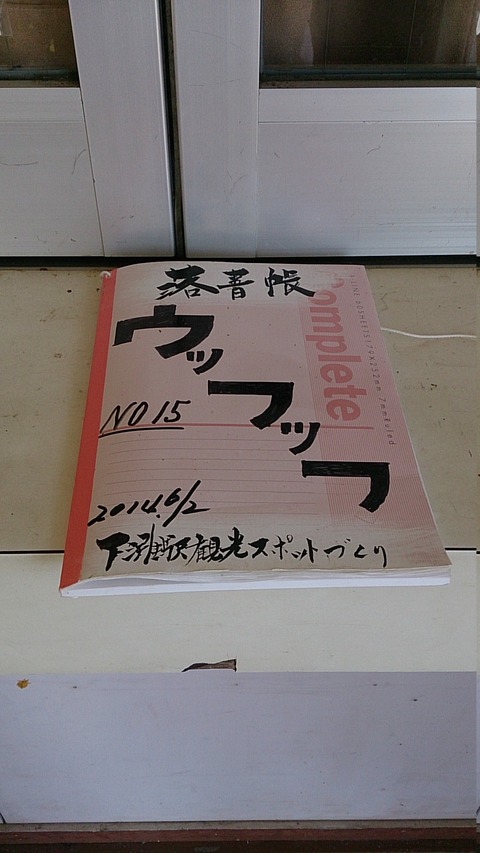 落書帳
ウッフッフ
NO 15
2014.6/2
下灘駅観光スポットづくり
Complete